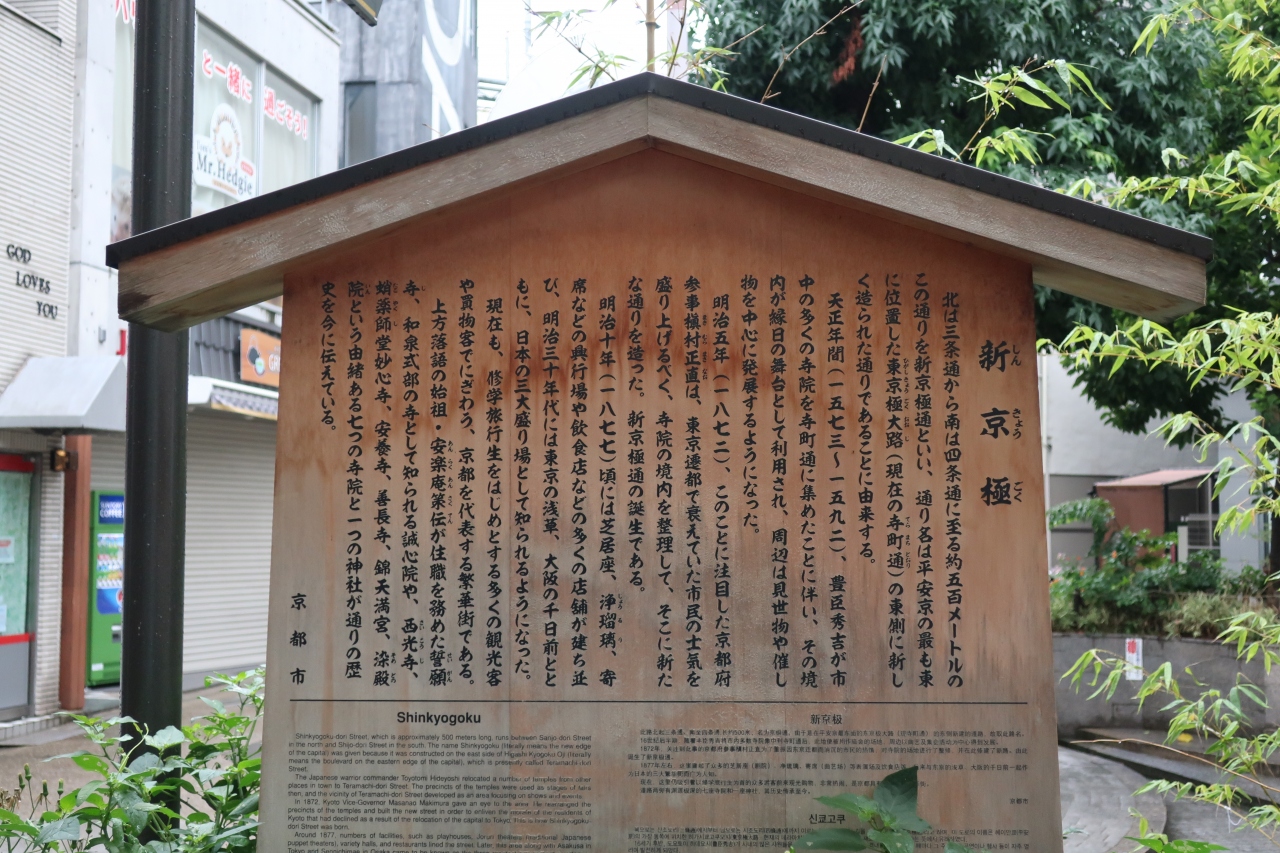 と一緒に
過ごそう!
Mr.Hedgie
GOD
LOVES
YOU
新京極
北は三条通から南は四条通に至る約五百メートルの
この通りを新京極通といい、通り名は平安京の最も東
に位置した東京極大路(現在の寺町通)の東側に新し
く造られた通りであることに由来する。
天正年間(一五七三~一五九二)、豊臣秀吉が市
中の多くの寺院を寺町通に集めたことに伴い、その境
内が縁日の舞台として利用され、周辺は見世物や催し
物を中心に発展するようになった。
明治五年(一八七二)、このことに注目した京都府
参事槇村正直は、東京遷都で衰えていた市民の士気を
盛り上げるべく、寺院の境内を整理して、そこに新た
な通りを造った。新京極通の誕生である。
明治十年(一八七七)頃には芝居座、浄瑠璃、寄
席などの興行場や飲食店などの多くの店舗が建ち並
び、明治三十年代には東京の浅草、大阪の千日前とと
もに、日本の三大盛り場として知られるようになった。
現在も、修学旅行生をはじめとする多くの観光客
や買物客でにぎわう、京都を代表する繁華街である。
上方落語の始祖・安楽庵策伝が住職を務めた誓願
寺、和泉式部の寺として知られる誠心院や、西光寺、
蛸薬師堂妙心寺、安養寺、善長寺、錦天満宮、染殿
院という由緒ある七つの寺院と一つの神社が通りの歴
史を今に伝えている。
京都市
Shinkyogoku
Shinkyogoku-dori Street, which is approximately 500 meters long, runs between Sanjo-dori Street
in the north and Shijo-dori Street in the south. The name Shinkyogoku (literally means the new edge
of the capital) was given because it was constructed on the east side of Higashi Kyogoku Oji (literally
means the boulevard on the eastern edge of the capital), which is presently called Teramachi-dori
Street.
The Japanese warrior commander Toyotomi Hideyoshi relocated a number of temples from other
places in town to Teramachi-dori Street. The precincts of the temples were used as stages of fairs
then, and the vicinity of Teramachi-dori Street developed as an area focusing on shows and events.
In 1872, Kyoto Vice-Governor Masanao Makimura gave an eye to the area. He rearranged the
precincts of the temples and built the new street in order to enliven the people of the residents of
Kyoto that had declined as a result of the relocation of the capital to Tokyo. This is how Shinkyogoku-
dori Street was born.
Around 1877, numbers of facilities, such as playhouses, Joruri theaters (traditional Japanese
puppet theaters), variety halls, and restaurants lined the street. Later, this area along with Asakusa in
新京极
京都市
신쿄고쿠